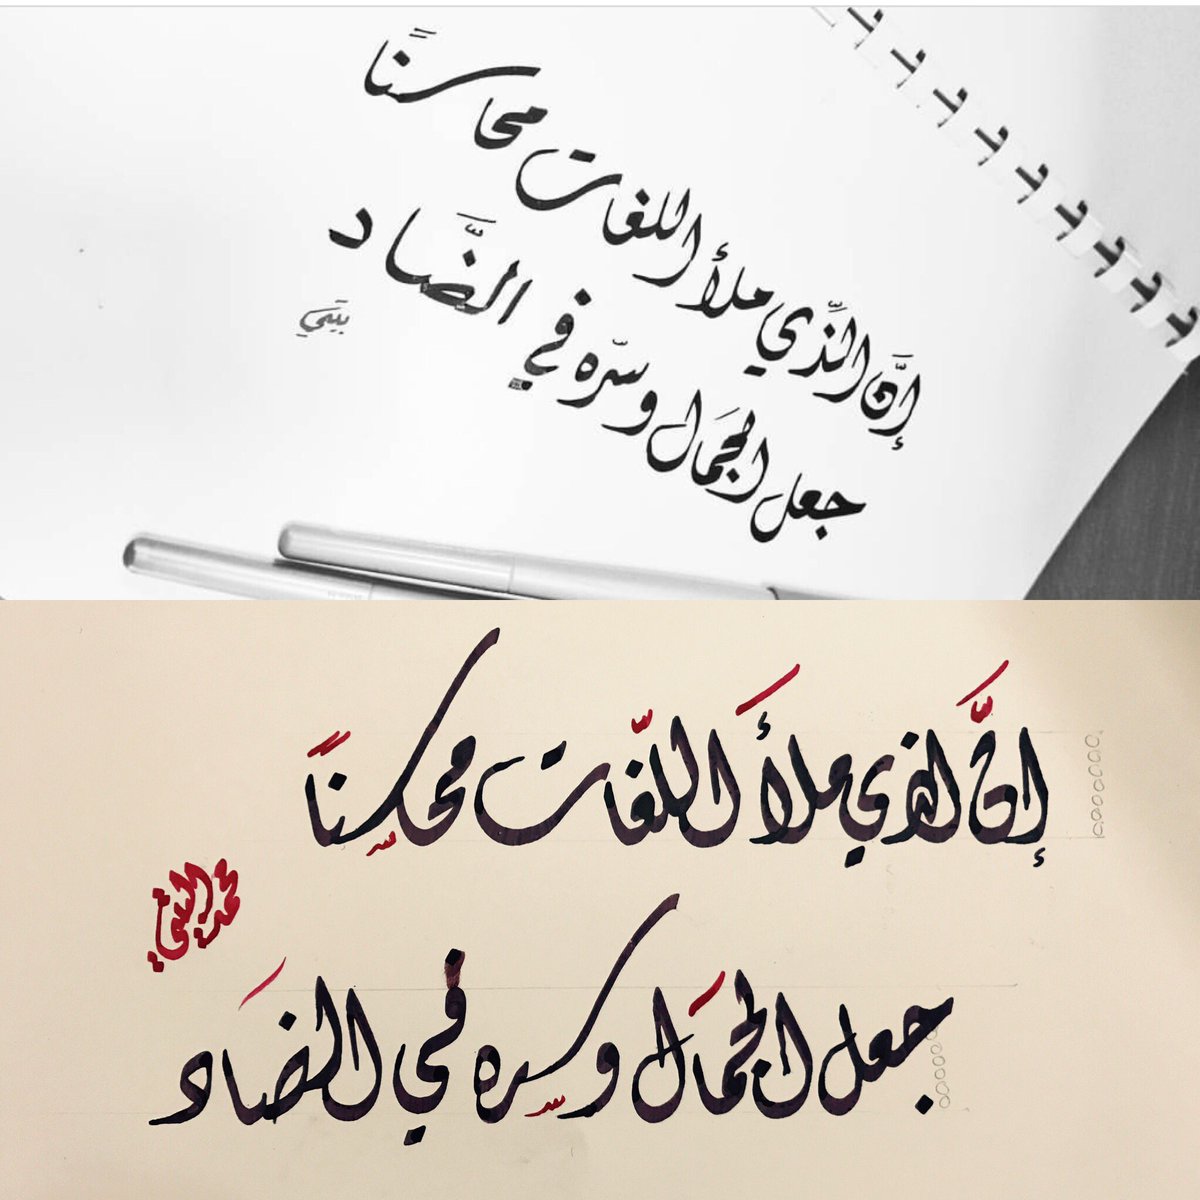 إنَّ الَّذِي ملأ اللغات محاسنًا
جعل الجمَال وسرّه في الضَّاد
بيتي
إنَّ الذي ملأَ اللّغات محاسِنًا
جعل الجمَال وسرّه في الضَاد